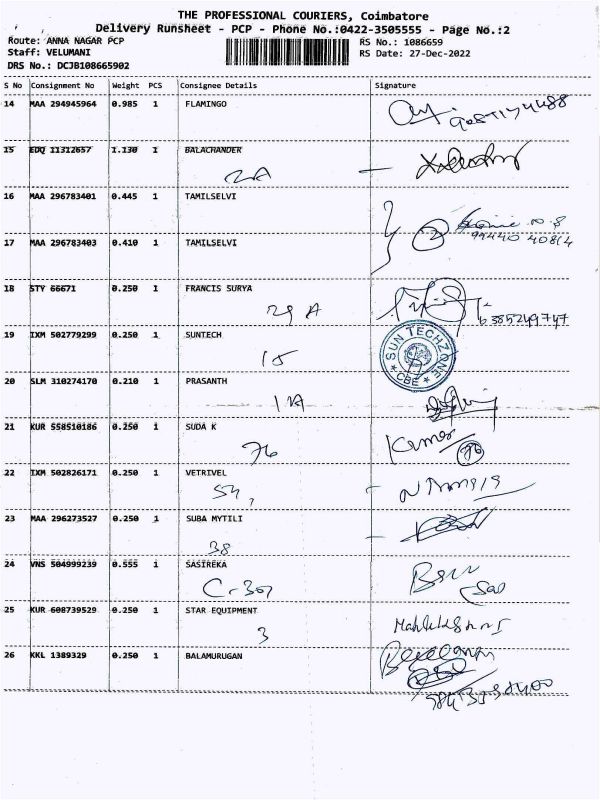 THE PROFESSIONAL COURIERS, Coimbatore
Delivery Runsheet - PCP - Phone No.:0422-3505555 - Page No.:2
Route: ANNA NAGAR PCP RS No.: 1086659
Staff: VELUMANI RS Date: 27-Dec-2022
DRS No.: DCJB108665902
S No Consignment No Weight PCS Consignee Details Signature
14 MAA 294945964 0.985 1 FLAMINGO
15 EDQ 11312657 1.130 1 BALACHANDER
2A
16 MAA 296783401 0.445 1 TAMILSELVI
17 MAA 296783403 0.410 1 TAMILSELVI
2 99440 40814
18 STY 66671 0.250 1 FRANCIS SURYA
29 A 6385249747
19 IXM 502779299 0.250 1 SUNTECH
15 SUN TECHZONE CBE
20 SLM 310274170 0.210 1 PRASANTH
1A
21 KUR 558510186 0.250 1 SUDA K
76 Kumar 76
22 IXM 502826171 0.250 1 VETRIVEL
23 MAA 296273527 0.250 1 SUBA MYTILI
38
24 VNS 504999239 0.555 1 SASIREKA
C-307
25 KUR 608739529 0.250 1 STAR EQUIPMENT
3
26 KKL 1389329 0.250 1 BALAMURUGAN